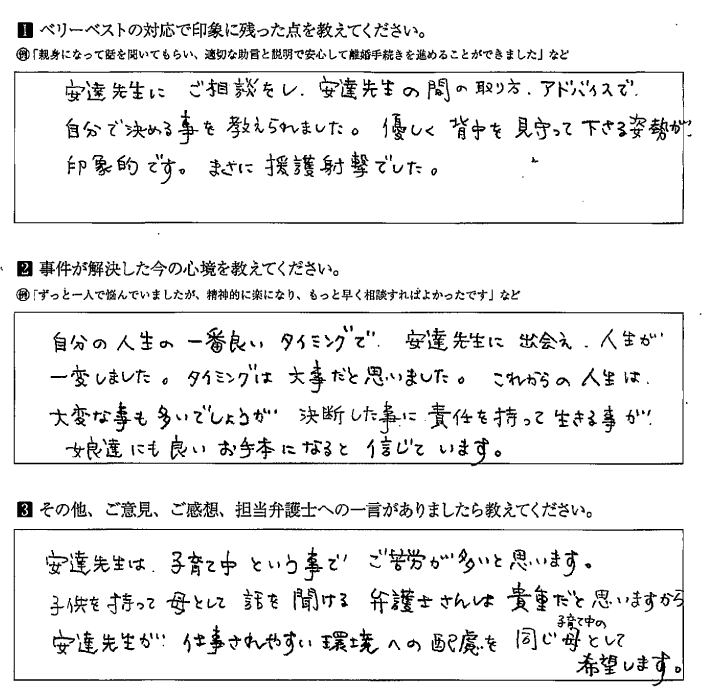 1 ベリーベストの対応で印象に残った点を教えてください。
例「親身になって話を聞いてもらい、適切な助言と説明で安心して離婚手続きを進めることができました」など
安達先生に ご相談をし、安達先生の間の取り方、アドバイスで、
自分で決める事を 教えられました。優しく 背中を 見守って 下さる姿勢が、
印象的です。まさに 援護射撃でした。
2 事件が解決した今の心境を教えてください。
例「ずっと一人で悩んでいましたが、精神的に楽になり、もっと早く相談すればよかったです」など
自分の 人生の 一番良い タイミングで、安達先生に 出会え、人生が
一変しました。タイミングは 大事だと思いました。これからの 人生は、
大変な事も 多いでしょうが 決断した事に 責任を持って 生きる事が、
娘達にも 良い お手本に なると 信じて います。
3 その他、ご意見、ご感想、担当弁護士への一言がありましたら教えてください。
安達先生は、子育て中 という事で ご苦労が多いと 思います。
子供を 持って 母として 話を 聞ける 弁護士さんは 貴重だと 思いますから
安達先生が 仕事されやすい 環境 への 配慮を 同じ子育て中の母として
希望します。